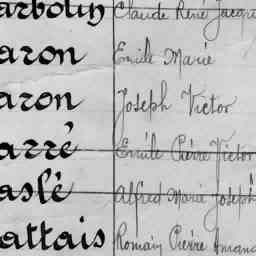 arbolin Claude René Jacque
aron Emile Marie
aron Joseph Victor
arré Emile Pierre Victor
aslé Alfred Marie Joseph
attais Romain Pierre Amand